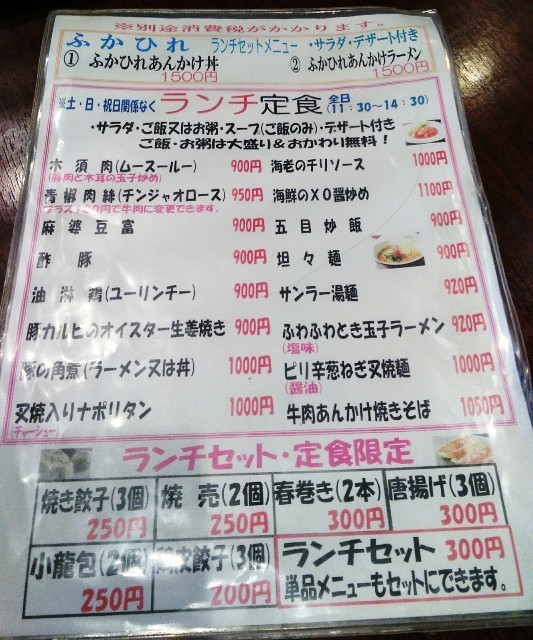 ※別途消費税がかかります。
ふかひれ ランチセットメニュー ・サラダ・デザート付き
① ふかひれあんかけ丼 1500円
② ふかひれあんかけラーメン 1500円
※土・日・祝日関係なく ランチ定食 全日(11:30~14:30)
・サラダ・ご飯又はお粥・スープ(ご飯のみ)・デザート付き
ご飯・お粥は大盛り&おかわり無料！
木須肉(ムースールー) 900円
(豚肉と木耳の玉子炒め)
青椒肉絲(チンジャオロース) 950円
プラス150円で牛肉に変更できます。
麻婆豆富 900円
酢豚 900円
油淋鶏(ユーリンチー) 900円
豚カルビのオイスター生姜焼き 900円
豚の角煮(ラーメン又は丼) 1000円
叉焼入りナポリタン 1000円
チャーシュー
海老のチリソース 1000円
海鮮のXO醤炒め 1100円
五目炒飯 900円
坦々麺 900円
サンラー湯麺 920円
ふわふわとき玉子ラーメン 920円
(塩味)
ピリ辛葱ねぎ叉焼麺 1000円
(醤油)
牛肉あんかけ焼きそば 1050円
ランチセット・定食限定
焼き餃子(3個) 250円
焼売(2個) 250円
春巻き(2本) 300円
唐揚げ(3個) 300円
小龍包(2個) 250円
皮餃子(3個) 200円
ランチセット 300円
単品メニューもセットにできます。